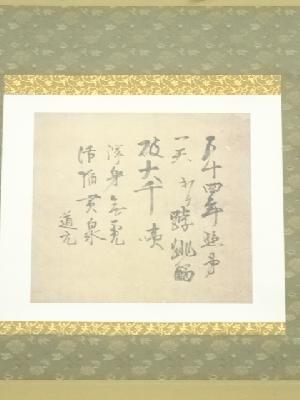 五十四年照第
一天打箇𨁝跳觸
破大千咦
渾身無覓
活陥黄泉
道元